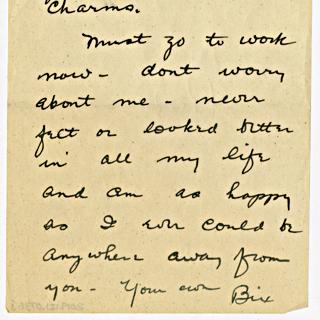 Charms.
Must go to work
now - dont worry
about me - never
felt or looked better
in all my life
and am as happy
as I ever could be
anywhere away from
you - Your own Bix